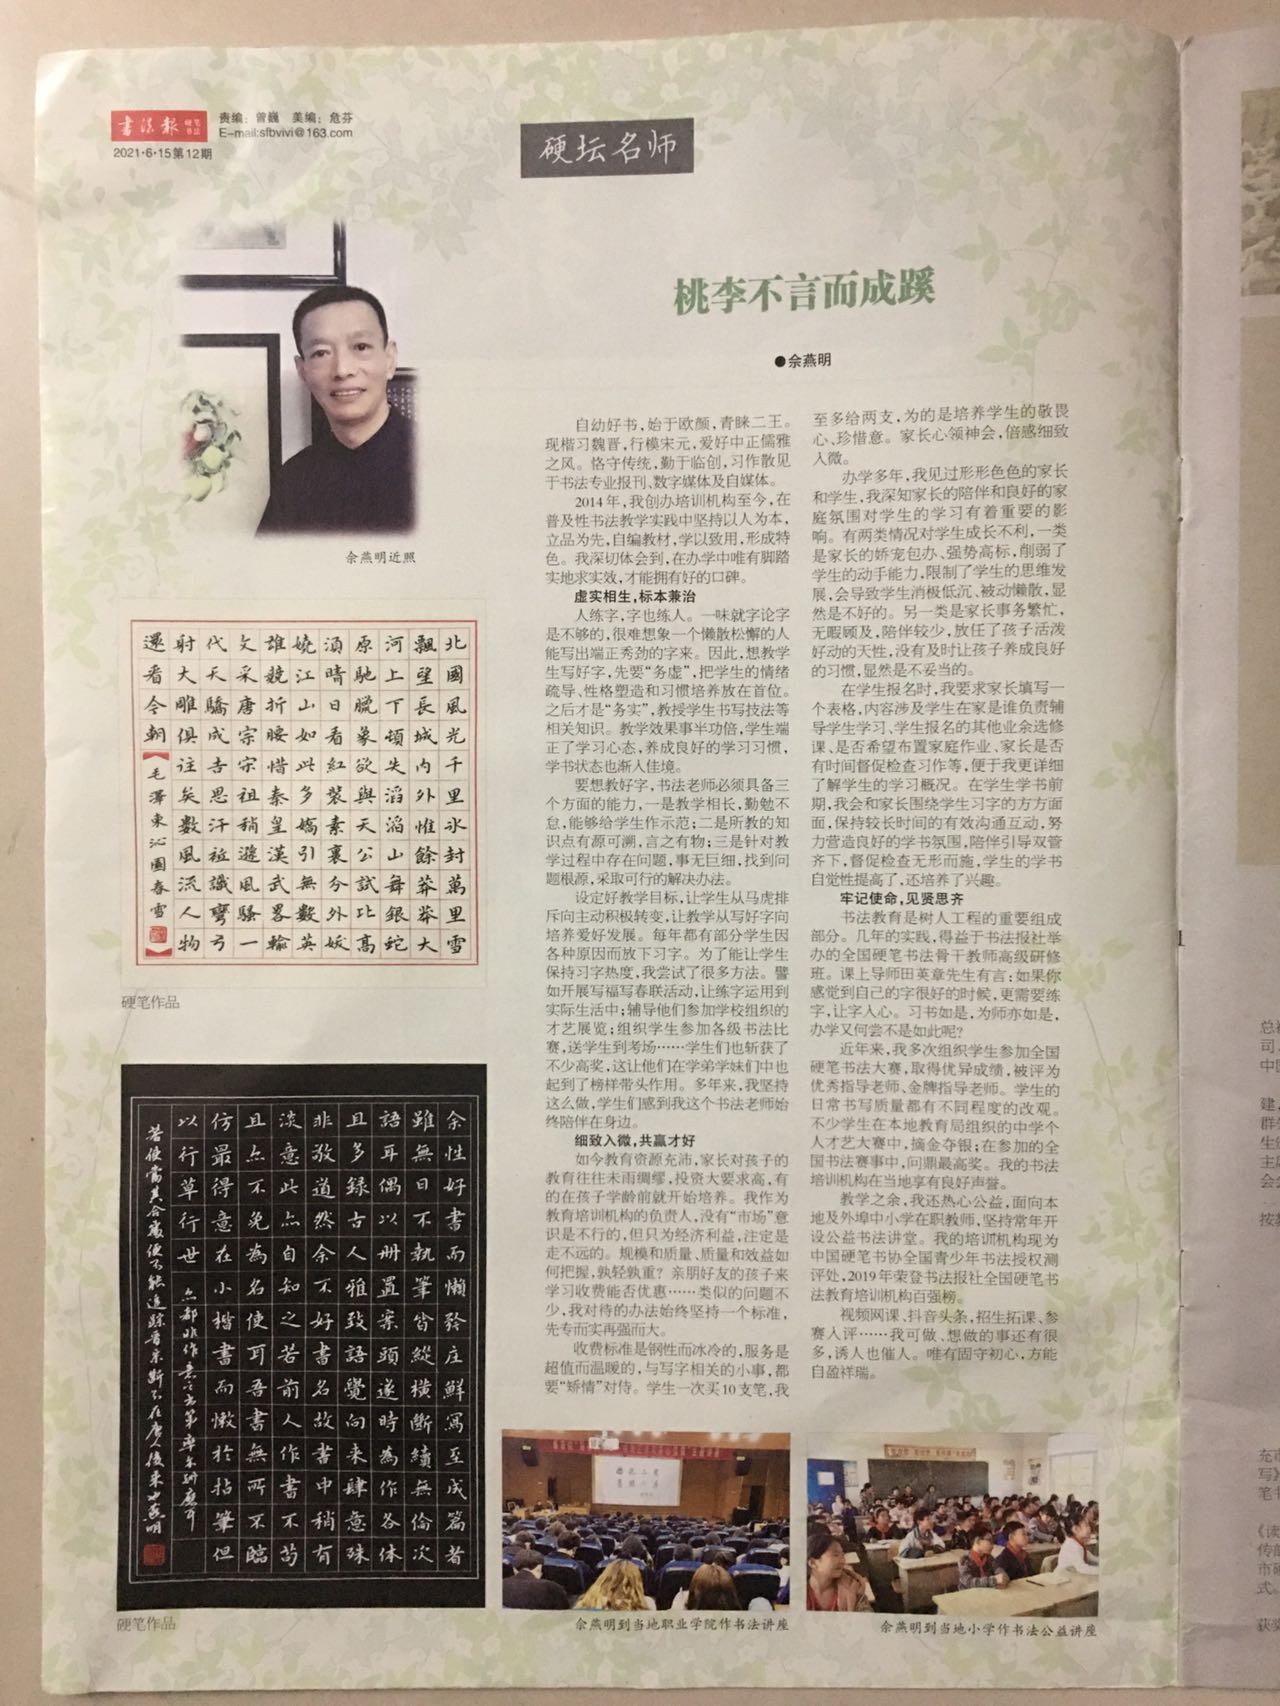 书法报 硬笔书法
责编：曾巍　美编：危芬
E-mail:sfbvivi@163.com
2021·6·15第12期
硬坛名师
桃李不言而成蹊
●佘燕明
佘燕明近照
北國風光千里冰封萬里雪
飄望長城內外惟餘莽莽大
河上下頓失滔滔山舞銀蛇
原馳臘象欲與天公試比高
須晴日看紅裝素裹分外妖
嬈江山如此多嬌引無數英
雄競折腰惜秦皇漢武畧輸
文采唐宗宋祖稍遜風騷一
代天驕成吉思汗祗識彎弓
射大雕俱往矣數風流人物
還看今朝
毛澤東沁園春雪
硬笔作品
余性好書而懶發庄鮮寫至成篇者
雖無日不執筆皆縱橫斷續無倫次
語耳偶以冊置案頭遂時為作各体
且多録古人雅致語覺向来肆意殊
非敬道然余不好書名故書中稍有
淡意此亦自知之若前人作書不苟
且亦不免為名使耳吾書無所不臨
仿最得意在小楷書而懒於拈筆但
以行草行世
硬笔作品
自幼好书，始于欧颜，青睐二王。
现楷习魏晋，行模宋元，爱好中正儒雅
之风。恪守传统，勤于临创，习作散见
于书法专业报刊、数字媒体及自媒体。
2014年，我创办培训机构至今，在
普及性书法教学实践中坚持以人为本，
立品为先，自编教材，学以致用，形成特
色。我深切体会到，在办学中唯有脚踏
实地求实效，才能拥有好的口碑。
虚实相生，标本兼治
人练字，字也练人。一味就字论字
是不够的，很难想象一个懒散松懈的人
能写出端正秀劲的字来。因此，想教学
生写好字，先要“务虚”，把学生的情绪
疏导、性格塑造和习惯培养放在首位。
之后才是“务实”，教授学生书写技法等
相关知识。教学效果事半功倍，学生端
正了学习心态，养成良好的学习习惯，
学书状态也渐入佳境。
要想教好字，书法老师必须具备三
个方面的能力，一是教学相长，勤勉不
怠，能够给学生作示范；二是所教的知
识点有源可溯，言之有物；三是针对教
学过程中存在问题，事无巨细，找到问
题根源，采取可行的解决办法。
设定好教学目标，让学生从马虎排
斥向主动积极转变，让教学从写好字向
培养爱好发展。每年都有部分学生因
各种原因而放下习字。为了能让学生
保持习字热度，我尝试了很多方法。譬
如开展写福写春联活动，让练字运用到
实际生活中；辅导他们参加学校组织的
才艺展览；组织学生参加各级书法比
赛，送学生到考场……学生们也斩获了
不少高奖，这让他们在学弟学妹们中也
起到了榜样带头作用。多年来，我坚持
这么做，学生们感到我这个书法老师始
终陪伴在身边。
细致入微，共赢才好
如今教育资源充沛，家长对孩子的
教育往往未雨绸缪，投资大要求高，有
的在孩子学龄前就开始培养。我作为
教育培训机构的负责人，没有“市场”意
识是不行的，但只为经济利益，注定是
走不远的。规模和质量、质量和效益如
何把握，孰轻孰重？亲朋好友的孩子来
学习收费能否优惠……类似的问题不
少，我对待的办法始终坚持一个标准，
先专而实再强而大。
收费标准是钢性而冰冷的，服务是
超值而温暖的，与写字相关的小事，都
要“矫情”对待。学生一次买10支笔，我
至多给两支，为的是培养学生的敬畏
心、珍惜意。家长心领神会，倍感细致
入微。
办学多年，我见过形形色色的家长
和学生，我深知家长的陪伴和良好的家
庭氛围对学生的学习有着重要的影
响。有两类情况对学生成长不利，一类
是家长的娇宠包办、强势高标，削弱了
学生的动手能力，限制了学生的思维发
展，会导致学生消极低沉、被动懒散，显
然是不好的。另一类是家长事务繁忙，
无暇顾及，陪伴较少，放任了孩子活泼
好动的天性，没有及时让孩子养成良好
的习惯，显然是不妥当的。
在学生报名时，我要求家长填写一
个表格，内容涉及学生在家是谁负责辅
导学生学习、学生报名的其他业余选修
课、是否希望布置家庭作业、家长是否
有时间督促检查习作等，便于我更详细
了解学生的学习概况。在学生学书前
期，我会和家长围绕学生习字的方方面
面，保持较长时间的有效沟通互动，努
力营造良好的学书氛围，陪伴引导双管
齐下，督促检查无形而施，学生的学书
自觉性提高了，还培养了兴趣。
牢记使命，见贤思齐
书法教育是树人工程的重要组成
部分。几年的实践，得益于书法报社举
办的全国硬笔书法骨干教师高级研修
班。课上导师田英章先生有言：如果你
感觉到自己的字很好的时候，更需要练
字，让字入心。习书如是，为师亦如是，
办学又何尝不是如此呢？
近年来，我多次组织学生参加全国
硬笔书法大赛，取得优异成绩，被评为
优秀指导老师、金牌指导老师。学生的
日常书写质量都有不同程度的改观。
不少学生在本地教育局组织的中学个
人才艺大赛中，摘金夺银；在参加的全
国书法赛事中，问鼎最高奖。我的书法
培训机构在当地享有良好声誉。
教学之余，我还热心公益，面向本
地及外埠中小学在职教师，坚持常年开
设公益书法讲堂。我的培训机构现为
中国硬笔书协全国青少年书法授权测
评处，2019年荣登书法报社全国硬笔书
法教育培训机构百强榜。
视频网课、抖音头条，招生拓课、参
赛入评……我可做、想做的事还有很
多，诱人也催人。唯有固守初心，方能
自盈祥瑞。
佘燕明到当地职业学院作书法讲座
佘燕明到当地小学作书法公益讲座